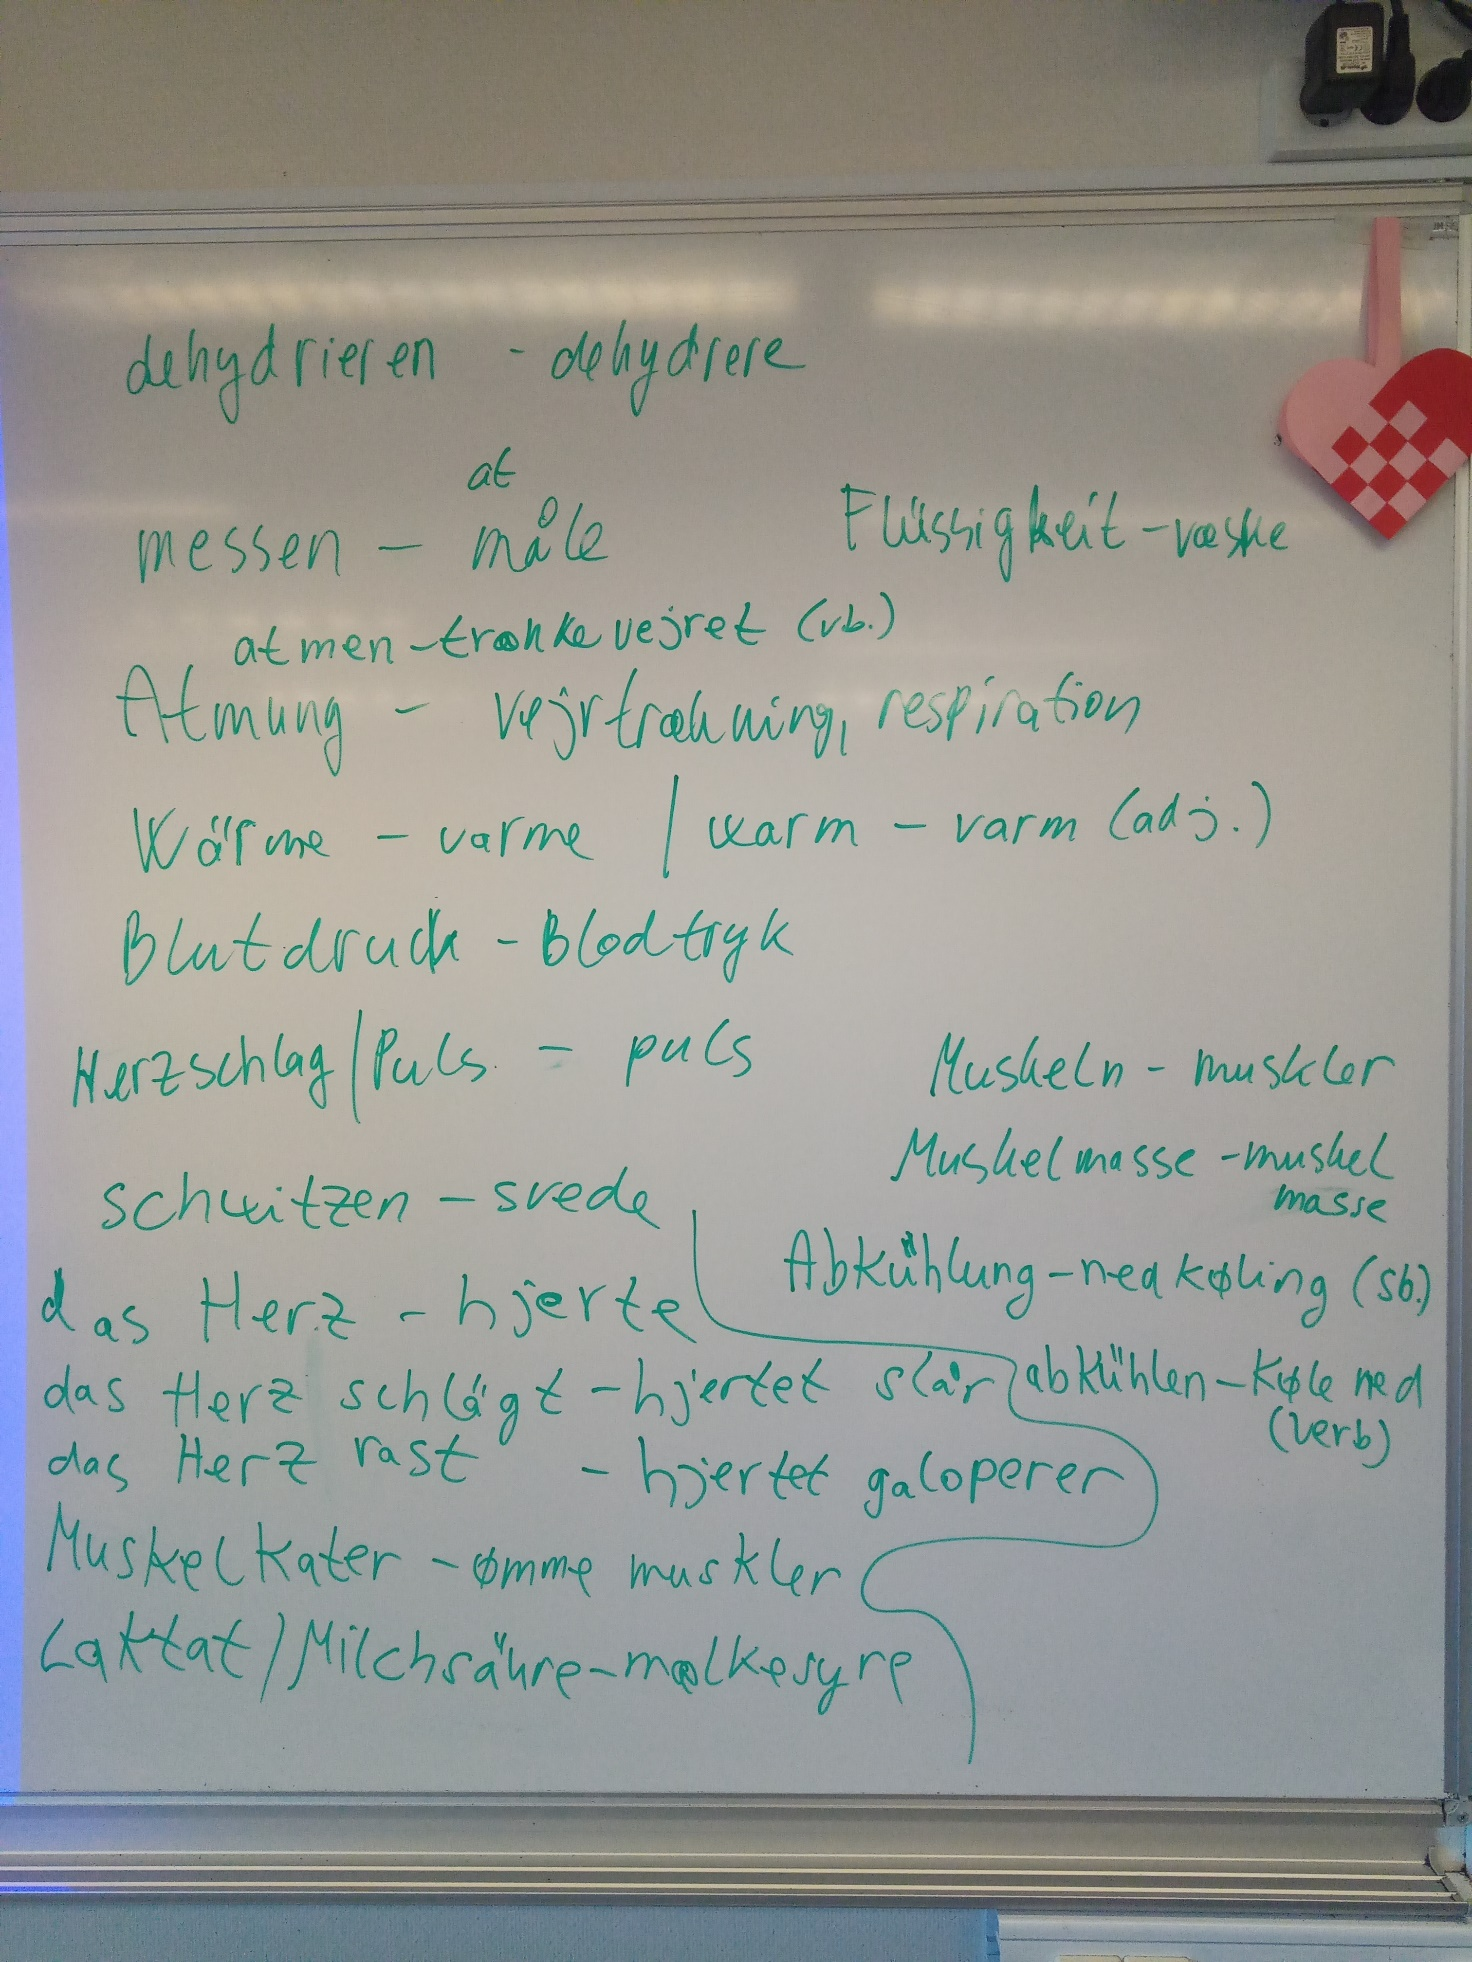 dehydrieren - dehydrere
at
messen - måle
Flüssigkeit - væske
atmen - trække vejret (vb.)
Atmung - vejrtrækning, respiration
Wärme - varme / warm - varm (adj.)
Blutdruck - Blodtryk
Herzschlag / Puls - puls
Muskeln - muskler
Muskelmasse - muskel
masse
schwitzen - svede
Abkühlung - nedkøling (sb.)
das Herz - hjerte
das Herz schlägt - hjertet slår
abkühlen - køle ned
(verb)
das Herz rast - hjertet galoperer
Muskelkater - ømme muskler
Laktat / Milchsäure - mælkesyre